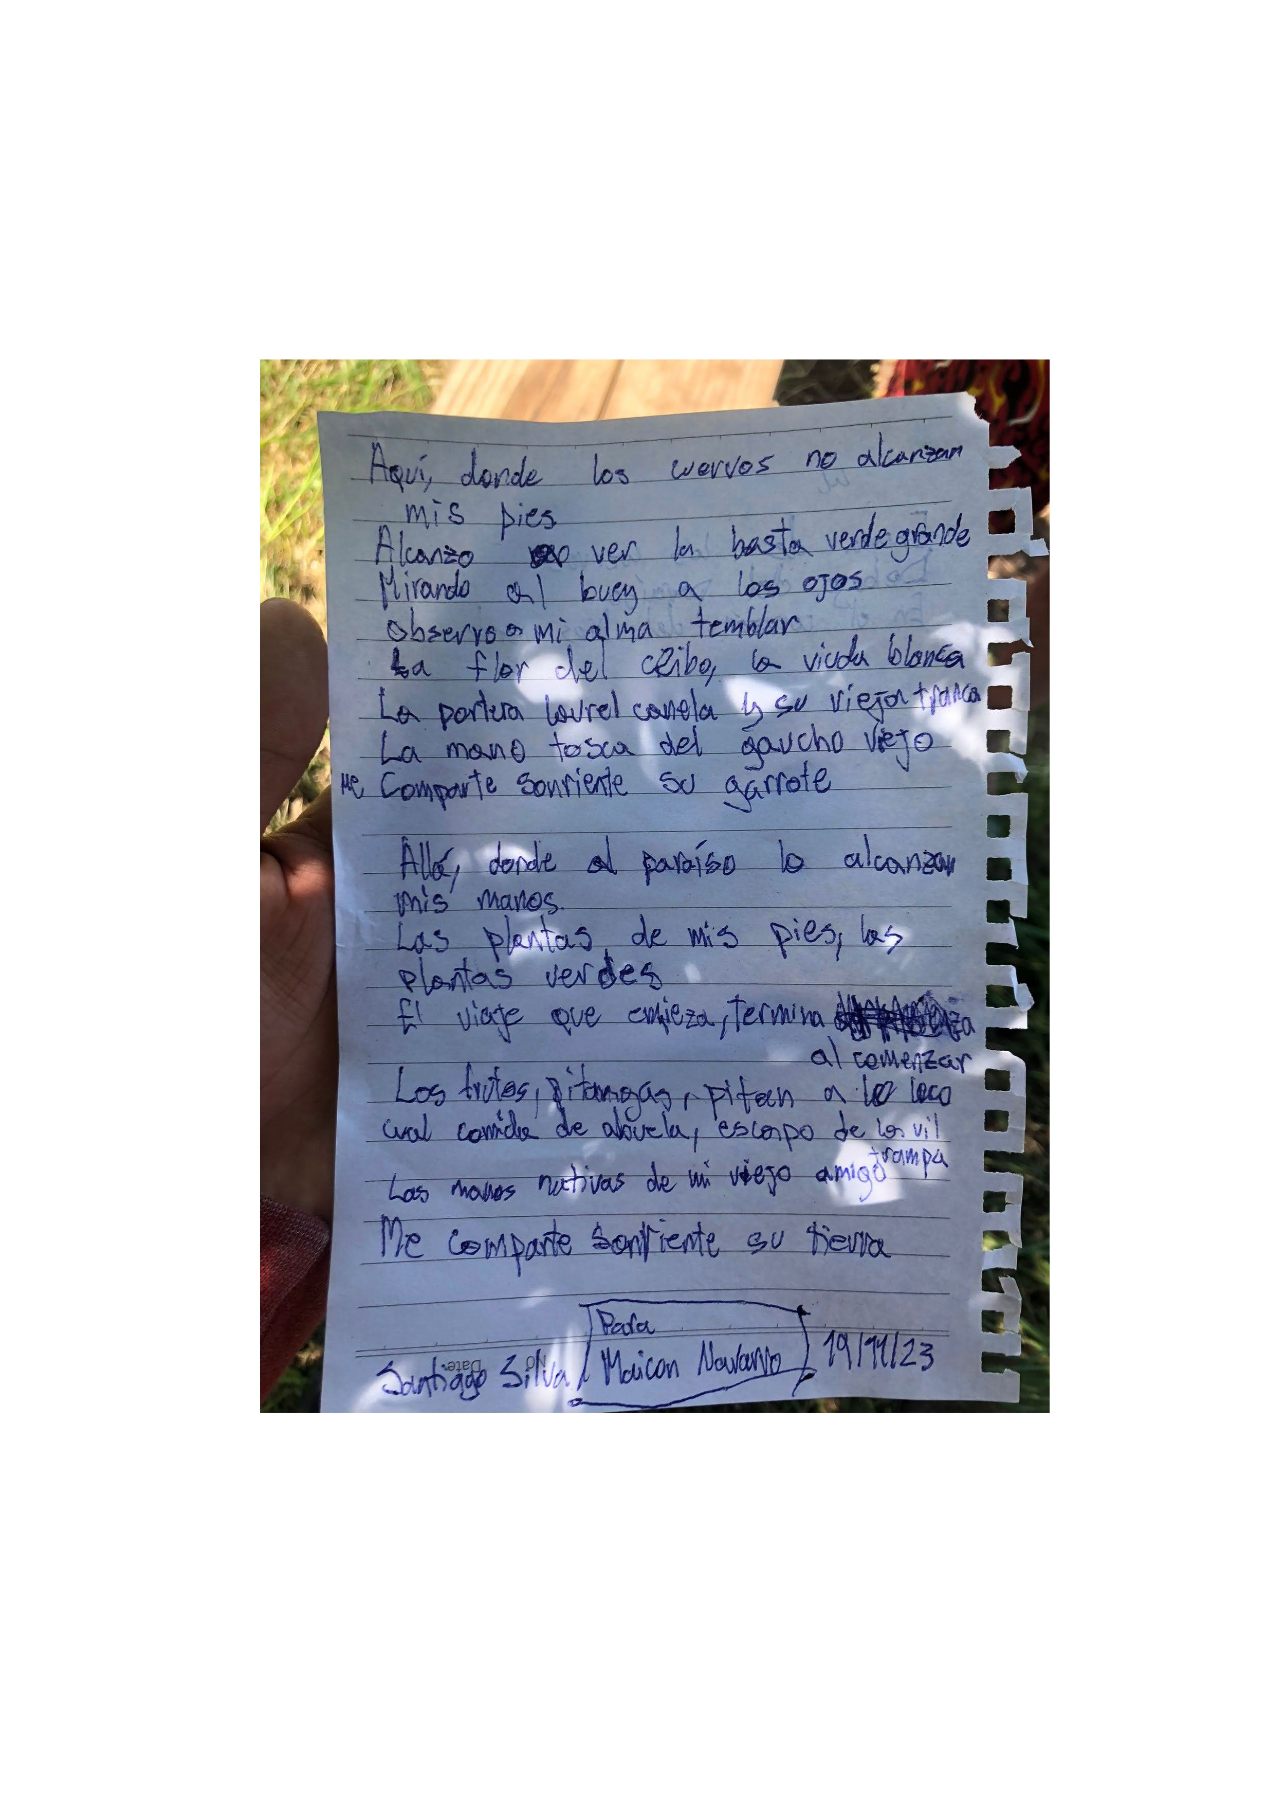 Aquí, donde los cuervos no alcanzan
mis pies
Alcanzo ver la basta verde grande
Mirando al buey a los ojos
observo a mi alma temblar
La flor del ceibo, la viuda blanca
La portera laurel canela y su vieja tranca
La mano tosca del gaucho viejo
Me Comparte sonriente su garrote
Allá, donde al paraíso lo alcanzan
mis manos.
Las plantas de mis pies, las
plantas verdes
El viaje que empieza, termina
al comenzar
Los frutos, pitangas, pitan a lo loco
cual comida de abuela, escapo de la vil
trampa
Las manos nativas de mi viejo amigo
Me comparte sonriente su tierra
Para
Santiago Silva / Maicon Navarro 19/11/23
No
Date